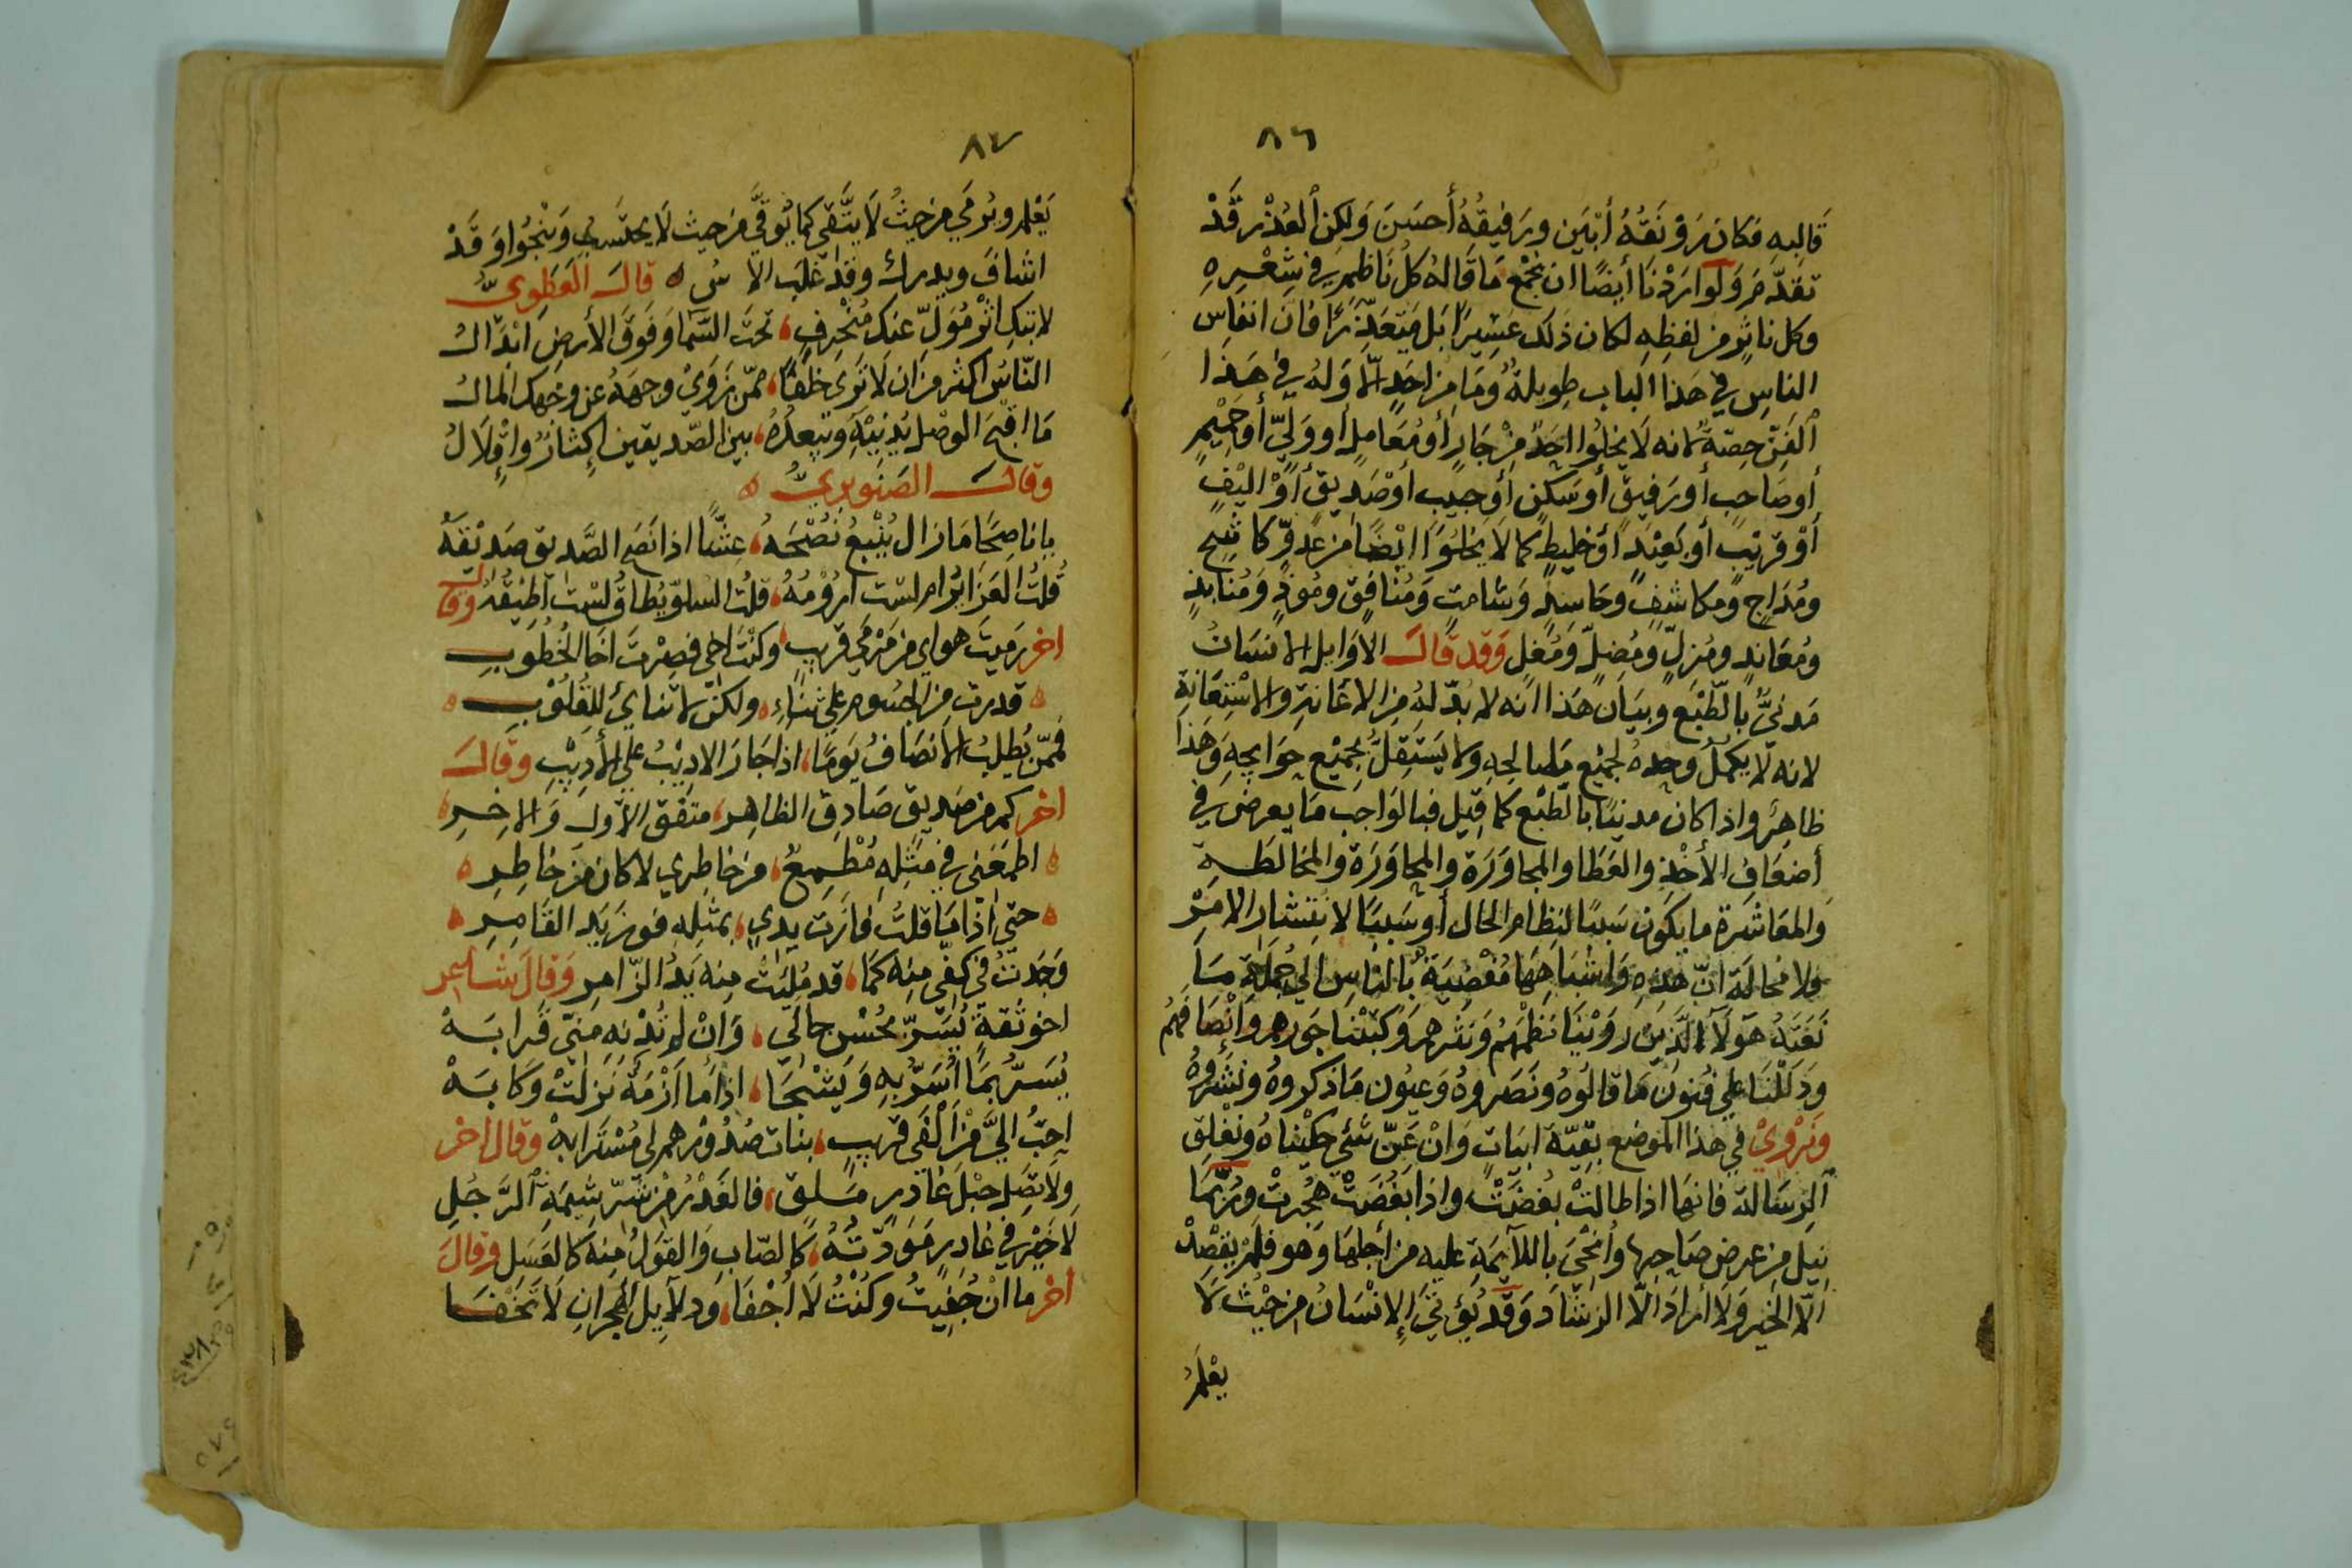 ٨٦
قالبه فكان رَوْنَقُهُ أبْيَن ورفيقه أحسَنَ وَلكن العُذْر قَدْ
تقدّم وَلَو ارَدْنَا أيضًا ان نجْمَع مَا قَالهُ كل نَاظم في شِعْرِه
وكل ناثر من لفظِهِ لكان ذلك عَسِيرًا بَل مُتَعَذّرًا فان انفاس
الناسِ في هذا الباب طِويلةٌ وَمَا من احَدٍ الّا وَلهُ في هَذا
الفَنّ حِصّةٌ لانه لَا يخلُوا احَدٌ مِنْ جَارٍ أو مُعَامِلٍ أو وَليّ أو حَمِيْمٍ
أو صَاحبٍ أو رفيقٍ أو سَكنٍ أو حبيب أوْ صَديقٍ أوْ اليْفٍ
أوْ قريْبٍ أو بَعيْدٍ أو خليطٍ كما لَا يخلُوا ايْضًا من عَدوٍّ كاشِحٍ
ومُدَاجٍ ومكاشِفٍ وحَاسِدٍ وَشامتٍ وَمُنافِقٍ ومُوذٍ وَمُنابذٍ
ومُعَاندٍ ومُزلٍّ ومُضلٍّ وَمُغلٍ وَقد قَالَ الاوَايل الانسَانُ
مَدنيٌّ بالطّبْع وبيَان هَذا انه لا بدّ لهُ من الاعَانةِ والاسْتِعَانةِ
لانه لَا يكمُلُ وحدهُ لجميْع مَصالحِهِ ولا يَستَقِلُّ بجميْع حوَايجِه وَهَذا
ظاهرٌ واذا كان مدنيًا بالطّبْع كما قيْل فبالوَاجب مَا يعرض في
أضعَافِ الأخْذِ والعَطَا والمجاوَرَة والمحاوَرَة والمخالَطَةِ
وَالمعَاشَرة ما يكون سَببًا لنِظام الحال أو سَببًا لانتشار الامْرِ
ولا محالَة انّ هذِهِ وَاشبَاهِهَا مُفْضِيَة بالناسِ الي جُملَةِ مَا
نَعَتَهُ هَولآءِ الّذيْن رَوَيْنَا نظْمَهُمْ وَنثرهم وَكتَبْنَا جَورهم وإنْصَافهُم
ودَلَلْنَا علي فُنون مَا قالُوهُ ونَصَروهُ وَعيُون مَا ذكروهُ ونشَروهُ
ونَرْوِيْ في هذا الموضع بقيّة ابيَاتٍ وَانْ عَنّ شئ حكيْناهُ ونُغلِق
الرّسَالة فانهَا اذا طالتْ بُغضَتْ واذا بُغضَتْ هُجرتْ ورُبّمَا
نِيْلَ من عِرضِ صَاحبِها وأنْحِيَ باللآئمَةِ عليه من أجلها وَهو فلم يقصِدْ
الّا الخير وَلَا أرادَ الّا الرشَادَ وَقَدْ يُؤْتَيَ الإنْسَانُ من حيْثُ لَا
يعْلَمُ
٨٧
يَعْلم ويُرمَي من حيثُ لَا يتّقي كما يُوقَّي من حيث لَا يحتَسبُ وَينْجُوا وَقَدْ
اشافَ ويدرك وقد غلبَ الا س قالَ العَطَوِيُّ
لا تبك اثْر مُوَلٍّ عنك مُنْحَرِفٍ، تحتَ السّمَا وَفَوقَ الأرضِ ابْدَالُ
النّاسُ اكثر من ان لَا ترَي خلفًا، ممّن زَوَيْ وجهَهُ عن وجهكَ المَالُ
مَا اقبحَ الوصْل يُدنيْهِ ويُبعدُهُ، بيْن الصّديقين اكِثارٌ وَاقْلَالُ
وقالَ الصَنَوبريُّ
يا ناصِحًا مَا زال يُتْبِعُ نُصْحَهُ، غِشّاً اذا نَصَح الصَّديق صَدِيْقَهُ
قُلتُ العَزَا يُرام لسْت أرُوْمُهُ، قلتُ السّلوّ يُطاقُ لسْتُ أطِيْقُهُ وقال
اخر رَميتَ هواي من مَرْميً قريب، وكنْتَ اخي فصِرْتَ أخَا الخُطوبِ
قدرت من الجسُوم علي تناءٍ، ولكن لا تنائِي للقُلوْبِ
فَممّن يُطلبُ الانصَافُ يَومًا، اذا جَارَ الاديْبُ علي الأديْبِ وقالَ
اخر كم من صَديق صَادِق الظاهِر، متفق الأوّل وَالاخِرِ
اطمَعَني في مَثِلِهِ مُطْمِعٌ، من خاطِري لا كان من خاطِرِ
حتي اذا مَا قلتُ فازَت يدي، بمثلِه فوز يَدِ القَامِرِ
وَجَدتُ في كفّي منه كمَا، قد مُلئتْ مِنه يَدُ الزّامِر وَقالَ شاعر
اخو ثقةٍ يُسَرّ بحُسْن حالي، وَانْ لم تُدْنِه مِنّي قَرابَهْ
يُسَرُّ بمَا أُسَرُّ بهِ وَيشْجَا، اذا مَا أزْمَةٌ نزلتْ وَكابَهْ
احبّ اليَّ مِنْ ألْفَي قريبٍ، بنات صُدُوْرهم لي مُسْتَرابهْ وقال اخر
وَلَا تَصِل حبْلَ غادرٍ مَلقٍ، فالغَدْرُ مِنْ شَرّ شيْمَةِ الرَّجُلِ
لَا خيْر في غادِرٍ مَوَدّتُهُ، كالصّابِ وَالقَوْلُ مِنه كالعَسَلِ وقالَ
اخر ما انْ جُفِيتُ وكُنْتُ لَا أُجْفَا، وَدلآيل الهجران لَا تَخْفَا